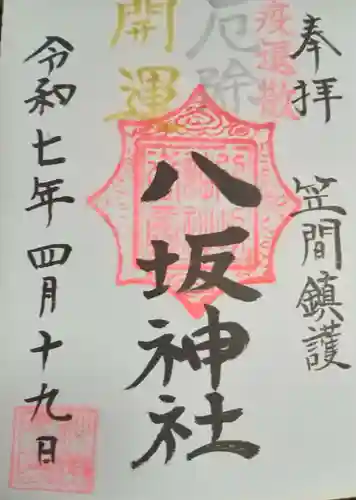 奉拝
笠間鎮護
疫退散
厄除
開運
八坂神社
令和七年四月十九日